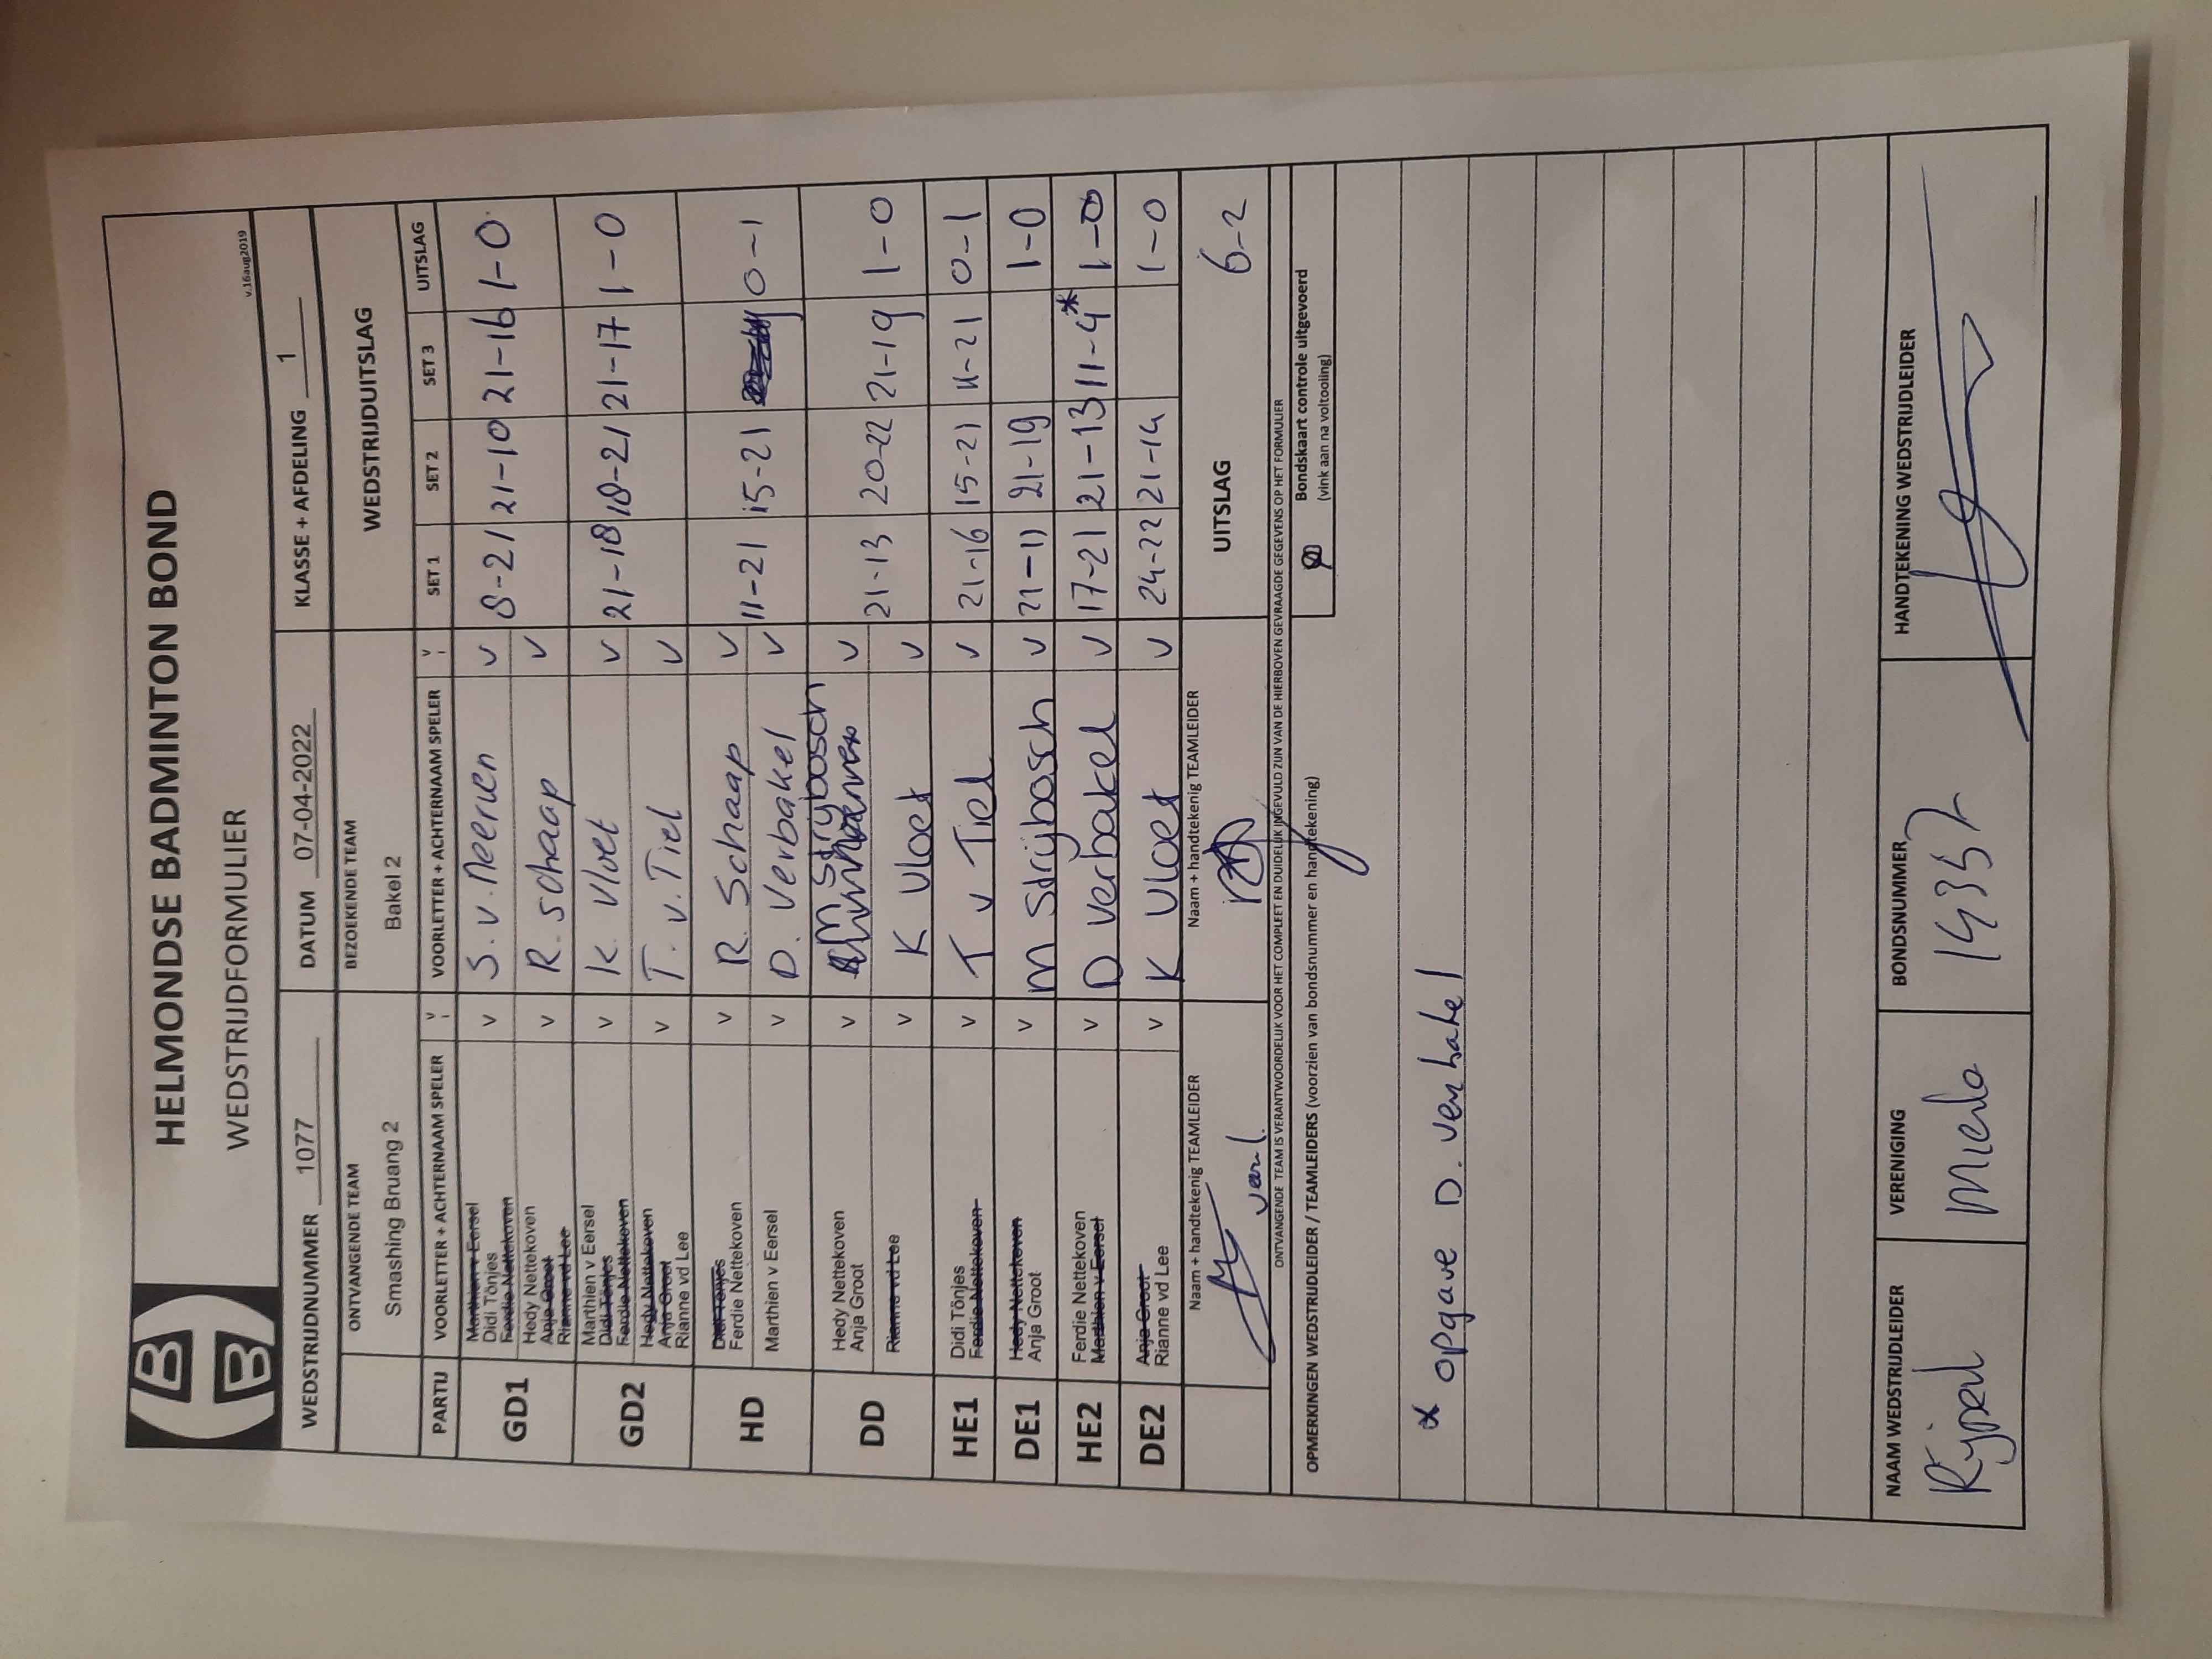 HELMONDSE BADMINTON BOND
WEDSTRIJDFORMULIER
v.16aug2019
WEDSTRIJDNUMMER 1077 DATUM 07-04-2022 KLASSE + AFDELING 1
ONTVANGENDE TEAM BEZOEKENDE TEAM WEDSTRIJDUITSLAG
Smashing Bruang 2 Bakel 2
PARTIJ VOORLETTER + ACHTERNAAM SPELER V VOORLETTER + ACHTERNAAM SPELER V SET 1 SET 2 SET 3 UITSLAG
GD1
Marthien v Eersel
Didi Tönjes
Ferdie Nettekoven
v S. v. Neerven v
Hedy Nettekoven
Anja Groot
Rianne vd Lee
v R. Schaap v
8-21 21-10 21-16 1-0
GD2
Marthien v Eersel
Didi Tönjes
Ferdie Nettekoven
v K. Vloet v
Hedy Nettekoven
Anja Groot
Rianne vd Lee
v T. v. Tiel v
21-18 18-21 21-17 1-0
HD
Didi Tönjes
Ferdie Nettekoven
v R. Schaap v
Marthien v Eersel
v D. Verbakel v
11-21 15-21 0-1
DD
Hedy Nettekoven
Anja Groot
v M Strijbosch v
Rianne vd Lee
v K Vloet v
21-13 20-22 21-19 1-0
HE1
Didi Tönjes
Ferdie Nettekoven
v T v Tiel v 21-16 15-21 11-21 0-1
DE1
Hedy Nettekoven
Anja Groot
v M Strijbosch v 21-11 21-19 1-0
HE2
Ferdie Nettekoven
Marthien v Eersel
v D Verbakel v 17-21 21-13 11-4* 1-0
DE2
Anja Groot
Rianne vd Lee
v K Vloet v 24-22 21-14 1-0
Naam + handtekenig TEAMLEIDER Naam + handtekenig TEAMLEIDER UITSLAG 6-2
ONTVANGENDE TEAM IS VERANTWOORDELIJK VOOR HET COMPLEET EN DUIDELIJK INGEVULD ZIJN VAN DE HIERBOVEN GEVRAAGDE GEGEVENS OP HET FORMULIER
OPMERKINGEN WEDSTRIJDLEIDER / TEAMLEIDERS (voorzien van bondsnummer en handtekening)
Bondskaart controle uitgevoerd
(vink aan na voltooling)
* opgave D. Verbakel
NAAM WEDSTRIJDLEIDER VERENIGING BONDSNUMMER HANDTEKENING WEDSTRIJDLEIDER
Mierlo